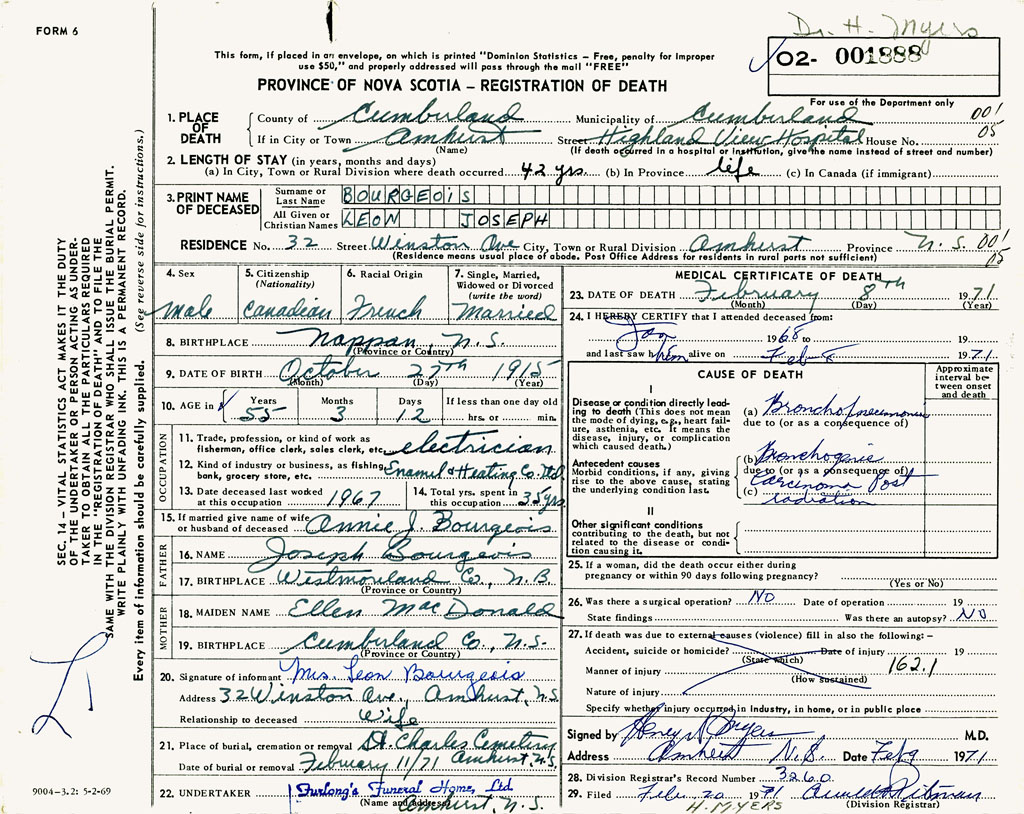 FORM 6
Dr. H. Myers
O2- 001888
This form, if placed in an envelope, on which is printed "Dominion Statistics - Free, penalty for improper
use $50," and properly addressed will pass through the mail "FREE"
PROVINCE OF NOVA SCOTIA - REGISTRATION OF DEATH
For use of the Department only
1. PLACE OF DEATH
County of Cumberland Municipality of Cumberland 001
If in City or Town Amhurst Street Highland View Hospital House No. 05
(Name) (If death occurred in a hospital or institution, give the name instead of street and number)
2. LENGTH OF STAY (in years, months and days)
(a) In City, Town or Rural Division where death occurred 42 yrs. (b) In Province life (c) In Canada (if immigrant)
3. PRINT NAME OF DECEASED
Surname or Last Name BOURGEOIS
All Given or Christian Names LEON JOSEPH
RESIDENCE No. 32 Street Winston Ave City, Town or Rural Division Amhurst Province N.S. 001
(Residence means usual place of abode. Post Office Address for residents in rural parts not sufficient) 05
4. Sex
male
5. Citizenship (Nationality)
Canadian
6. Racial Origin
French
7. Single, Married, Widowed or Divorced (write the word)
Married
8. BIRTHPLACE Nappan, N.S.
(Province or Country)
9. DATE OF BIRTH October 27th 1915
(Month) (Day) (Year)
10. AGE in Years Months Days If less than one day old
55 3 12 hrs. or min.
OCCUPATION
11. Trade, profession, or kind of work as
fisherman, office clerk, sales clerk, etc. electrician
12. Kind of industry or business, as fishing,
bank, grocery store, etc. Enamel & Heating Co. Ltd
13. Date deceased last worked at this occupation 1967
14. Total yrs. spent in this occupation 35 yrs
15. If married give name of wife or husband of deceased Annie J. Bourgeois
FATHER
16. NAME Joseph Bourgeois
17. BIRTHPLACE Westmorland Co., N.B.
(Province or Country)
MOTHER
18. MAIDEN NAME Ellen MacDonald
19. BIRTHPLACE Cumberland Co., N.S.
(Province or Country)
20. Signature of informant Mrs. Leon Bourgeois
Address 32 Winston Ave., Amhurst, N.S.
Relationship to deceased Wife
21. Place of burial, cremation or removal St. Charles Cemetery
Date of burial or removal February 11/71 Amhurst, N.S.
22. UNDERTAKER Furlong's Funeral Home, Ltd
(Name and address) Amhurst, N.S.
MEDICAL CERTIFICATE OF DEATH
23. DATE OF DEATH February 8th 1971
(Month) (Day) (Year)
24. I HEREBY CERTIFY that I attended deceased from:
Jan 1968 to
and last saw him alive on Feb 8 1971
CAUSE OF DEATH
Approximate interval between onset and death
I
Disease or condition directly leading to death (This does not mean the mode of dying, e.g., heart failure, asthenia, etc. It means the disease, injury, or complication which caused death.)
(a) Bronchopneumonia
due to (or as a consequence of)
Antecedent causes
Morbid conditions, if any, giving rise to the above cause, stating the underlying condition last.
(b) Bronchogenic
due to (or as a consequence of)
(c) Carcinoma post
radiation
II
Other significant conditions
contributing to the death, but not related to the disease or condition causing it.
25. If a woman, did the death occur either during
pregnancy or within 90 days following pregnancy?
(Yes or No)
26. Was there a surgical operation? NO Date of operation 19
State findings Was there an autopsy? NO
27. If death was due to external causes (violence) fill in also the following:-
Accident, suicide or homicide? Date of injury 19
(State which)
Manner of injury 162.1
(How sustained)
Nature of injury
Specify whether injury occurred in industry, in home, or in public place
Signed by Henry R Myers M.D.
Address Amherst N.S. Date Feb 9 1971
28. Division Registrar's Record Number 3260
29. Filed Feb. 20 1971
(Division Registrar)
H. MYERS
SEC. 14 - VITAL STATISTICS ACT MAKES IT THE DUTY
OF THE UNDERTAKER OR PERSON ACTING AS UNDER-
TAKER TO OBTAIN ALL THE PARTICULARS REQUIRED
IN THE "REGISTRATION OF DEATH" AND TO FILE THE
SAME WITH THE DIVISION REGISTRAR WHO SHALL ISSUE THE BURIAL PERMIT.
WRITE PLAINLY WITH UNFADING INK. THIS IS A PERMANENT RECORD.
Every item of information should be carefully supplied. (See reverse side for instructions.)
9004-3.2: 5-2-69